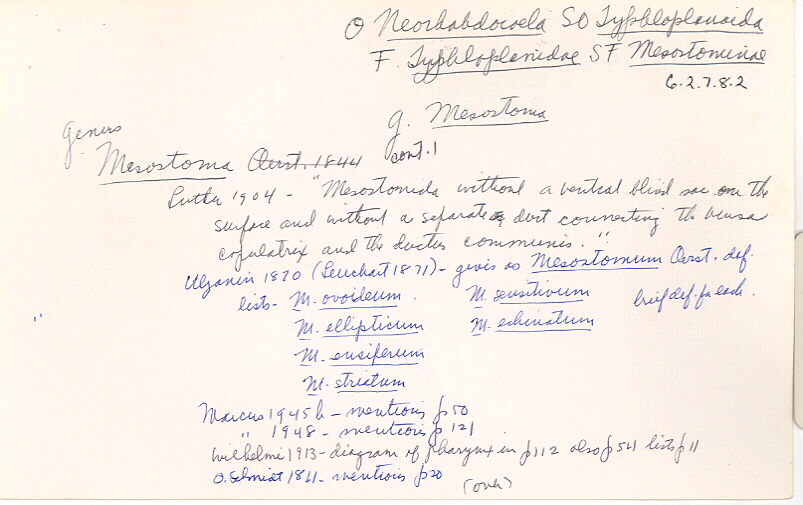 O Neorhabdocoela SO Typhloplanoida
F. Typhloplanidae SF Mesostominae
6.2.7.8.2
g. Mesostoma
cont. 1
Genus
Mesostoma Oerst. 1844
Luther 1904 - "Mesostomida without a ventral blind sac on the
surface and without a separate duct connecting the bursa
copulatrix and the ductus communis."
Uljanin 1870 (Leuckart 1871) - gives as Mesostomum Oerst. def.
lists - M. ovoideum. M. sensitivum brief def. for each.
M. ellipticum M. echinatum
M. ensiferum
M. striatum
Marcus 1945 b - mentions p 50
" 1948 - mentions p 121
Wilhelmi 1913 - diagram of pharynx in p 112 also p 541 lists p 11
O. Schmidt 1861 - mentions p 20
(over)